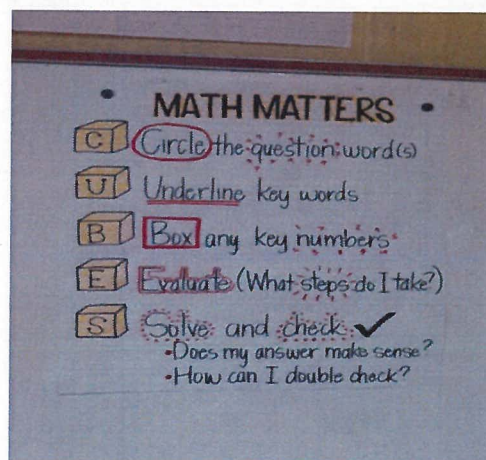 • MATH MATTERS •
C Circle the question word(s)
U Underline key words
B Box any key numbers
E Evaluate (What steps do I take?)
S Solve and check ✓
•Does my answer make sense?
•How can I double check?